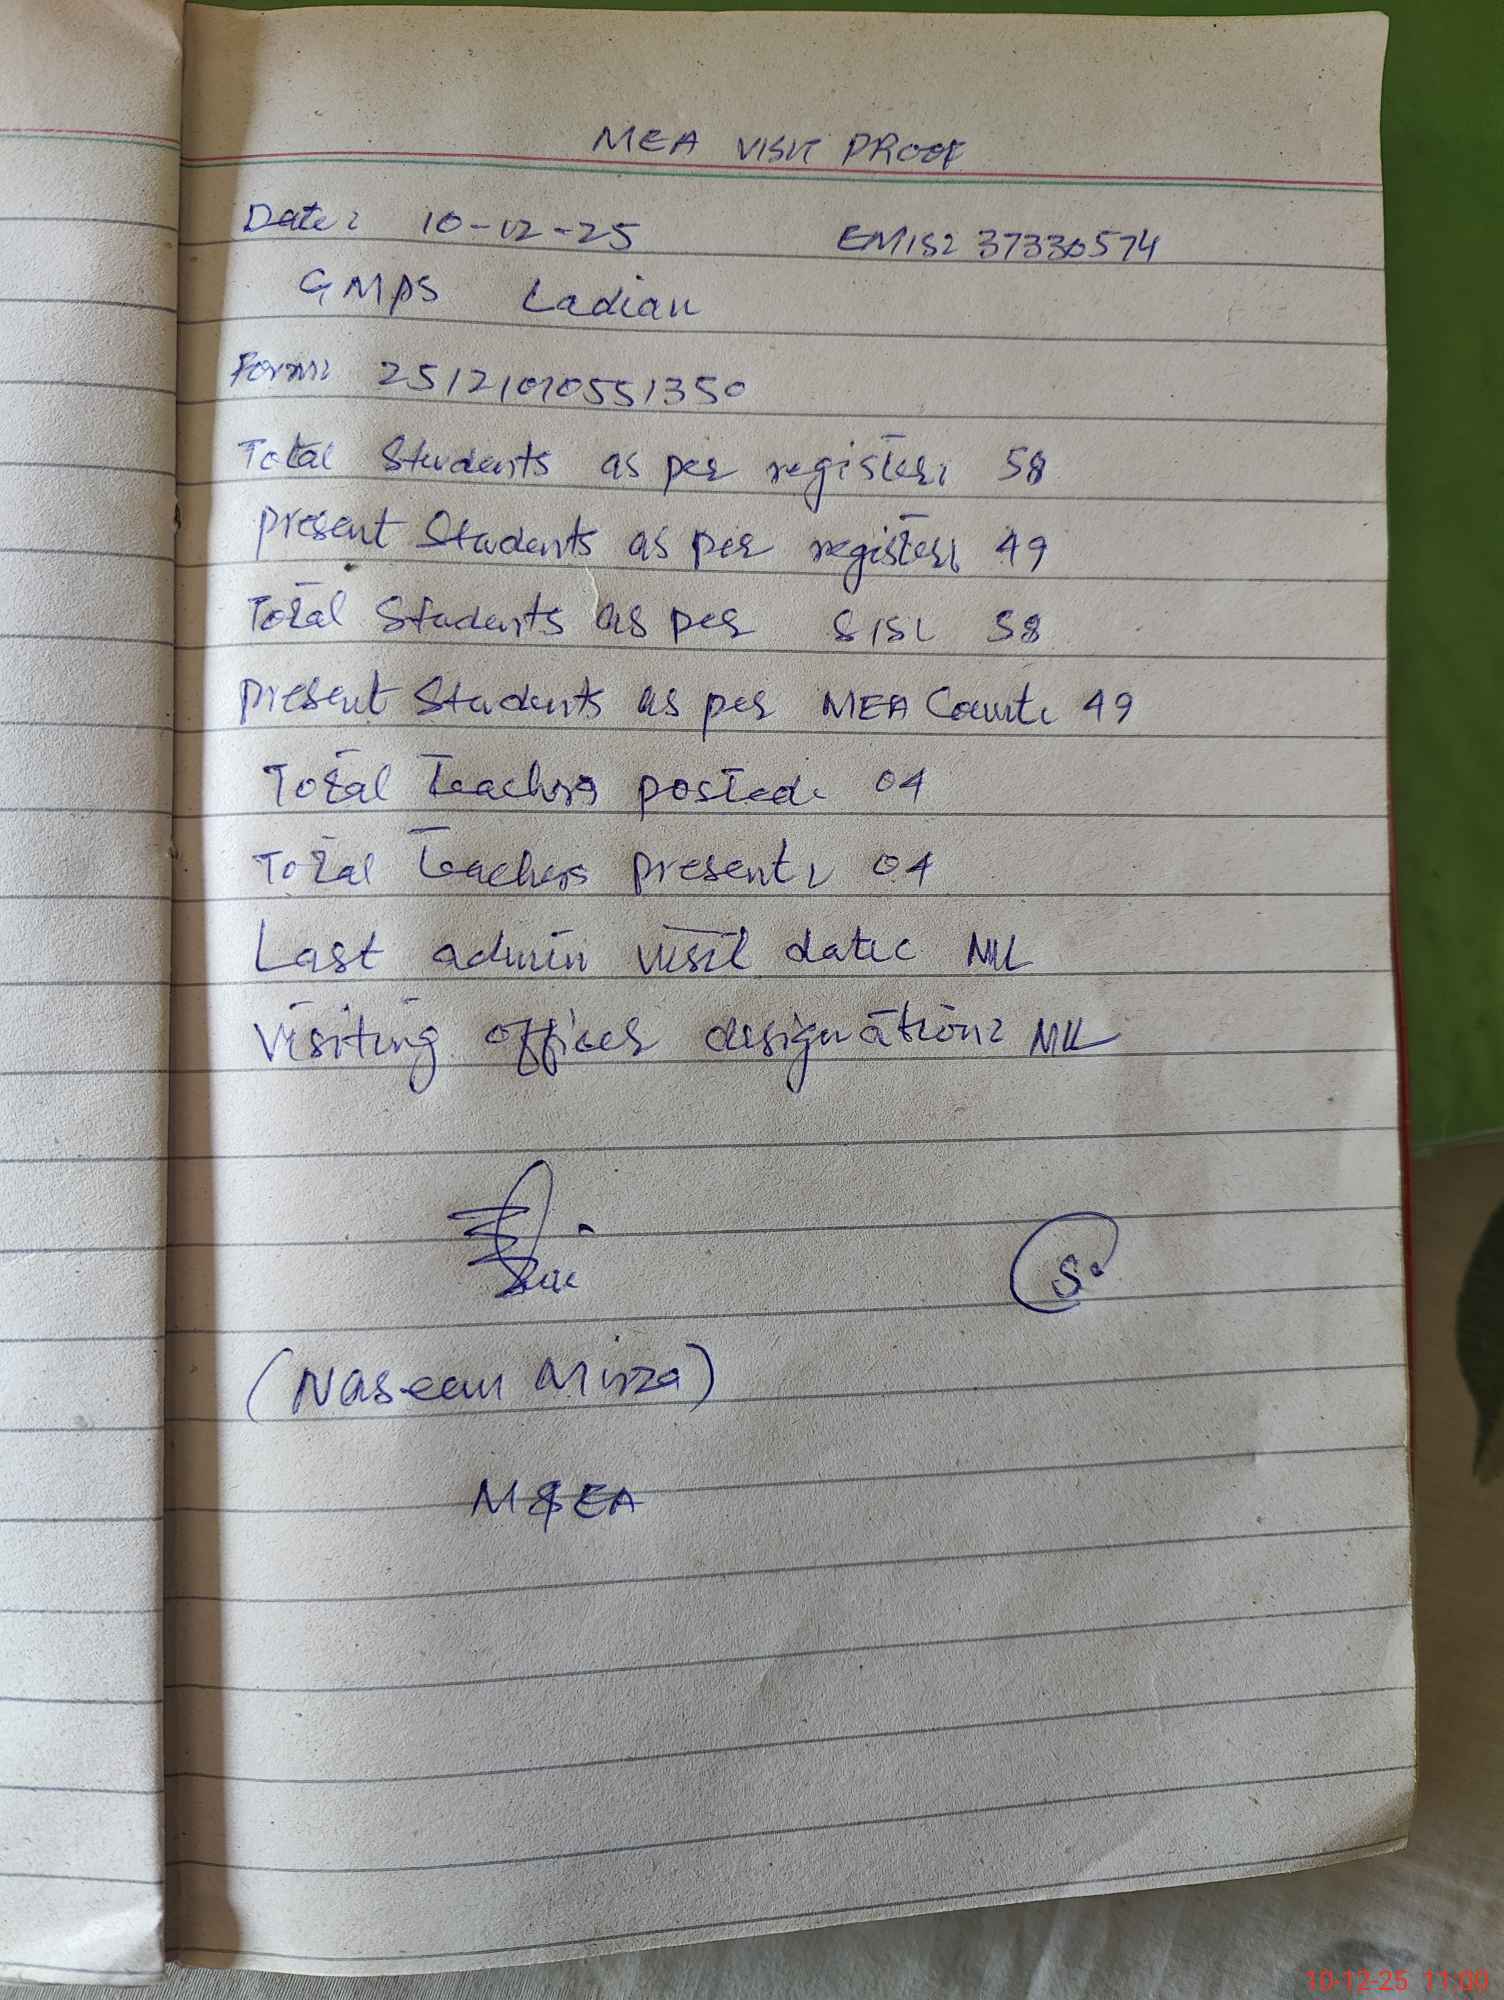 MEA VISIT PROOF
Date: 10-12-25 EMIS: 37330574
GMPS Ladian
Form: 25121010551350
Total Students as per register: 58
Present Students as per register: 49
Total Students as per SIS: 58
Present Students as per MEA Count: 49
Total Teachers posted: 04
Total Teachers present: 04
Last admin visit date: Nil
Visiting officer designation: Nil
S.
(Naseem Mirza)
MEA
10-12-25 11:00